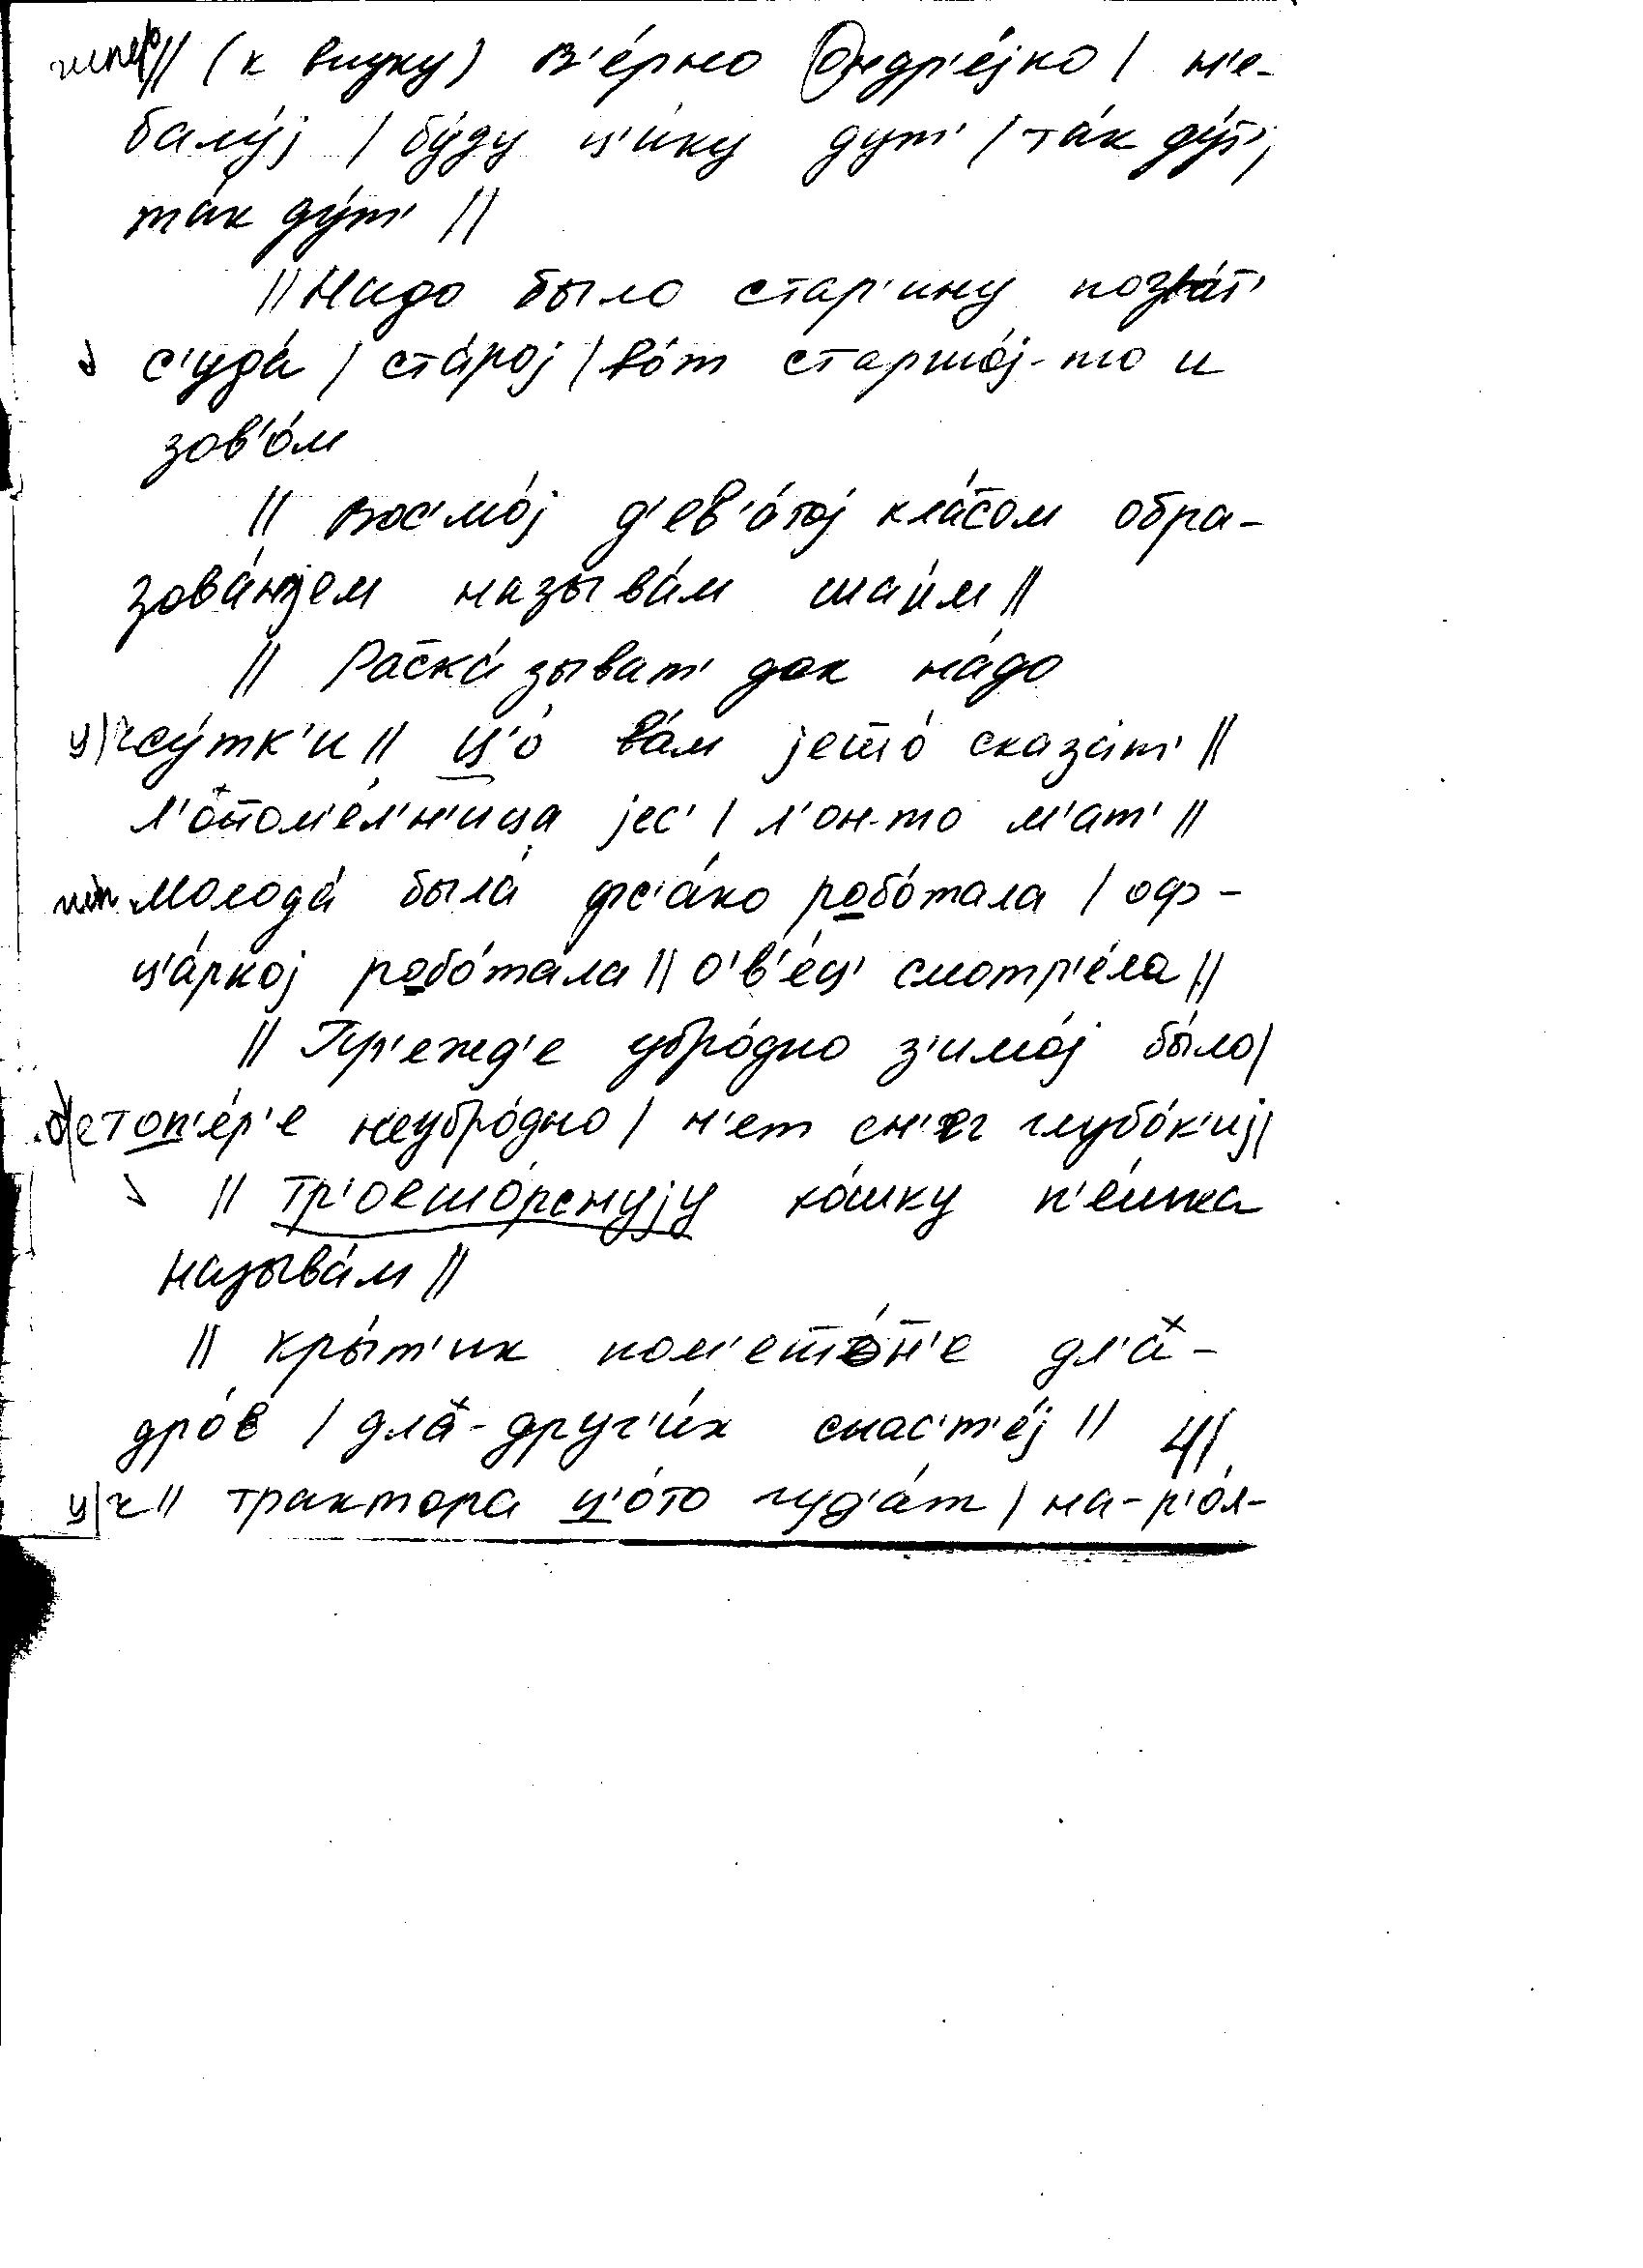 || (к внуку) в'е́рно Ондр'е́јко / н'е-
балу́ј / бу́ду ц'и́ку дут' / та́к ду́т',
та́к ду́т' ||
|| Надо было стар'ину позва́т'
с'уда́ / ста́рој / во́т старшо́ј-то и
зов'о́м
|| Вос'мо́ј д'ев'а́тој кла́с̄ом обра-
зова́нјем называ́м шаи́м ||
|| Рас̄ка́зыват' док на́до
ц/ч су́тк'и || ц'о́ ва́м јешто́ сказа́т' ||
л'о̄пом'е́л'н'ица јес' / л'он-то м'ат' ||
Молода́ была́ фс'а́ко робо́тала / оф-
ц'а́ркој робо́тала || о'в'е́ц' смотр'е́ла ||
|| Пр'ежд'е убро́дно з'имо́ј бы́ло /
е топ'е́р'е неубро́дно / н'ет сн'ег глубо́к'иј /
|| Тр'оешо́рснују ко́шку п'е́шка
называ́м ||
|| кры́т'ик пом'еш̄е́н'е дл'а-
дро́в / дла-друг'и́х снас'т'е́ј || 4/
ц/ч || трактора ц'о́то гуд'а́т / на-п'о́л-